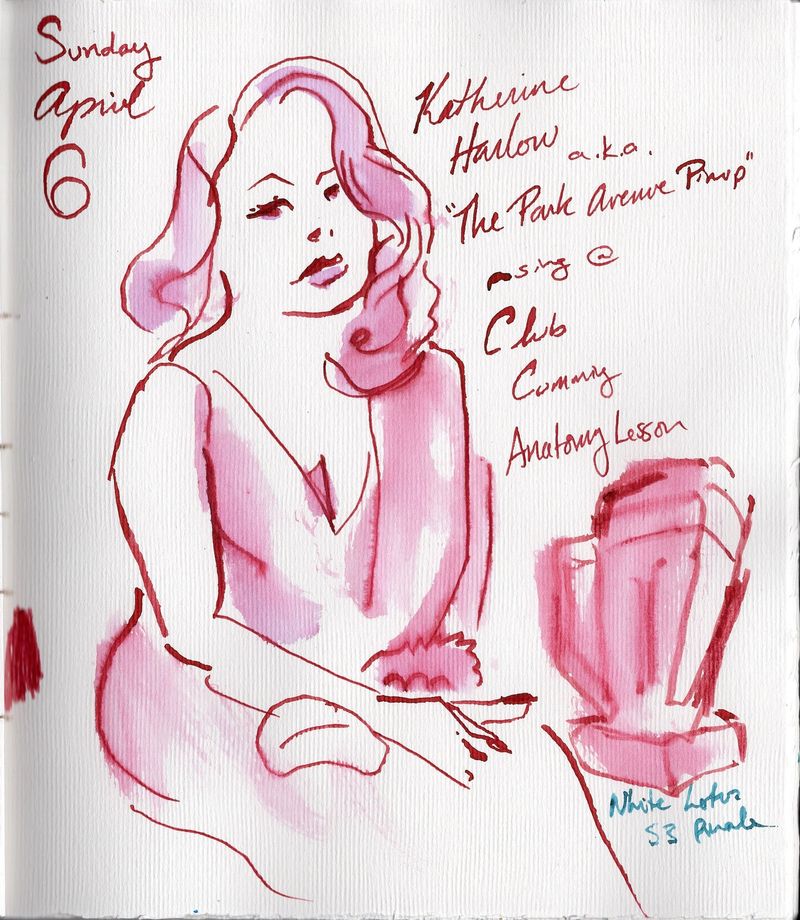 Sunday
April
6
Katherine
Harlow a.k.a.
"The Park Avenue Pinup"
posing @
Club
Cumming
Anatomy Lesson
White Lotus
S3 Finale